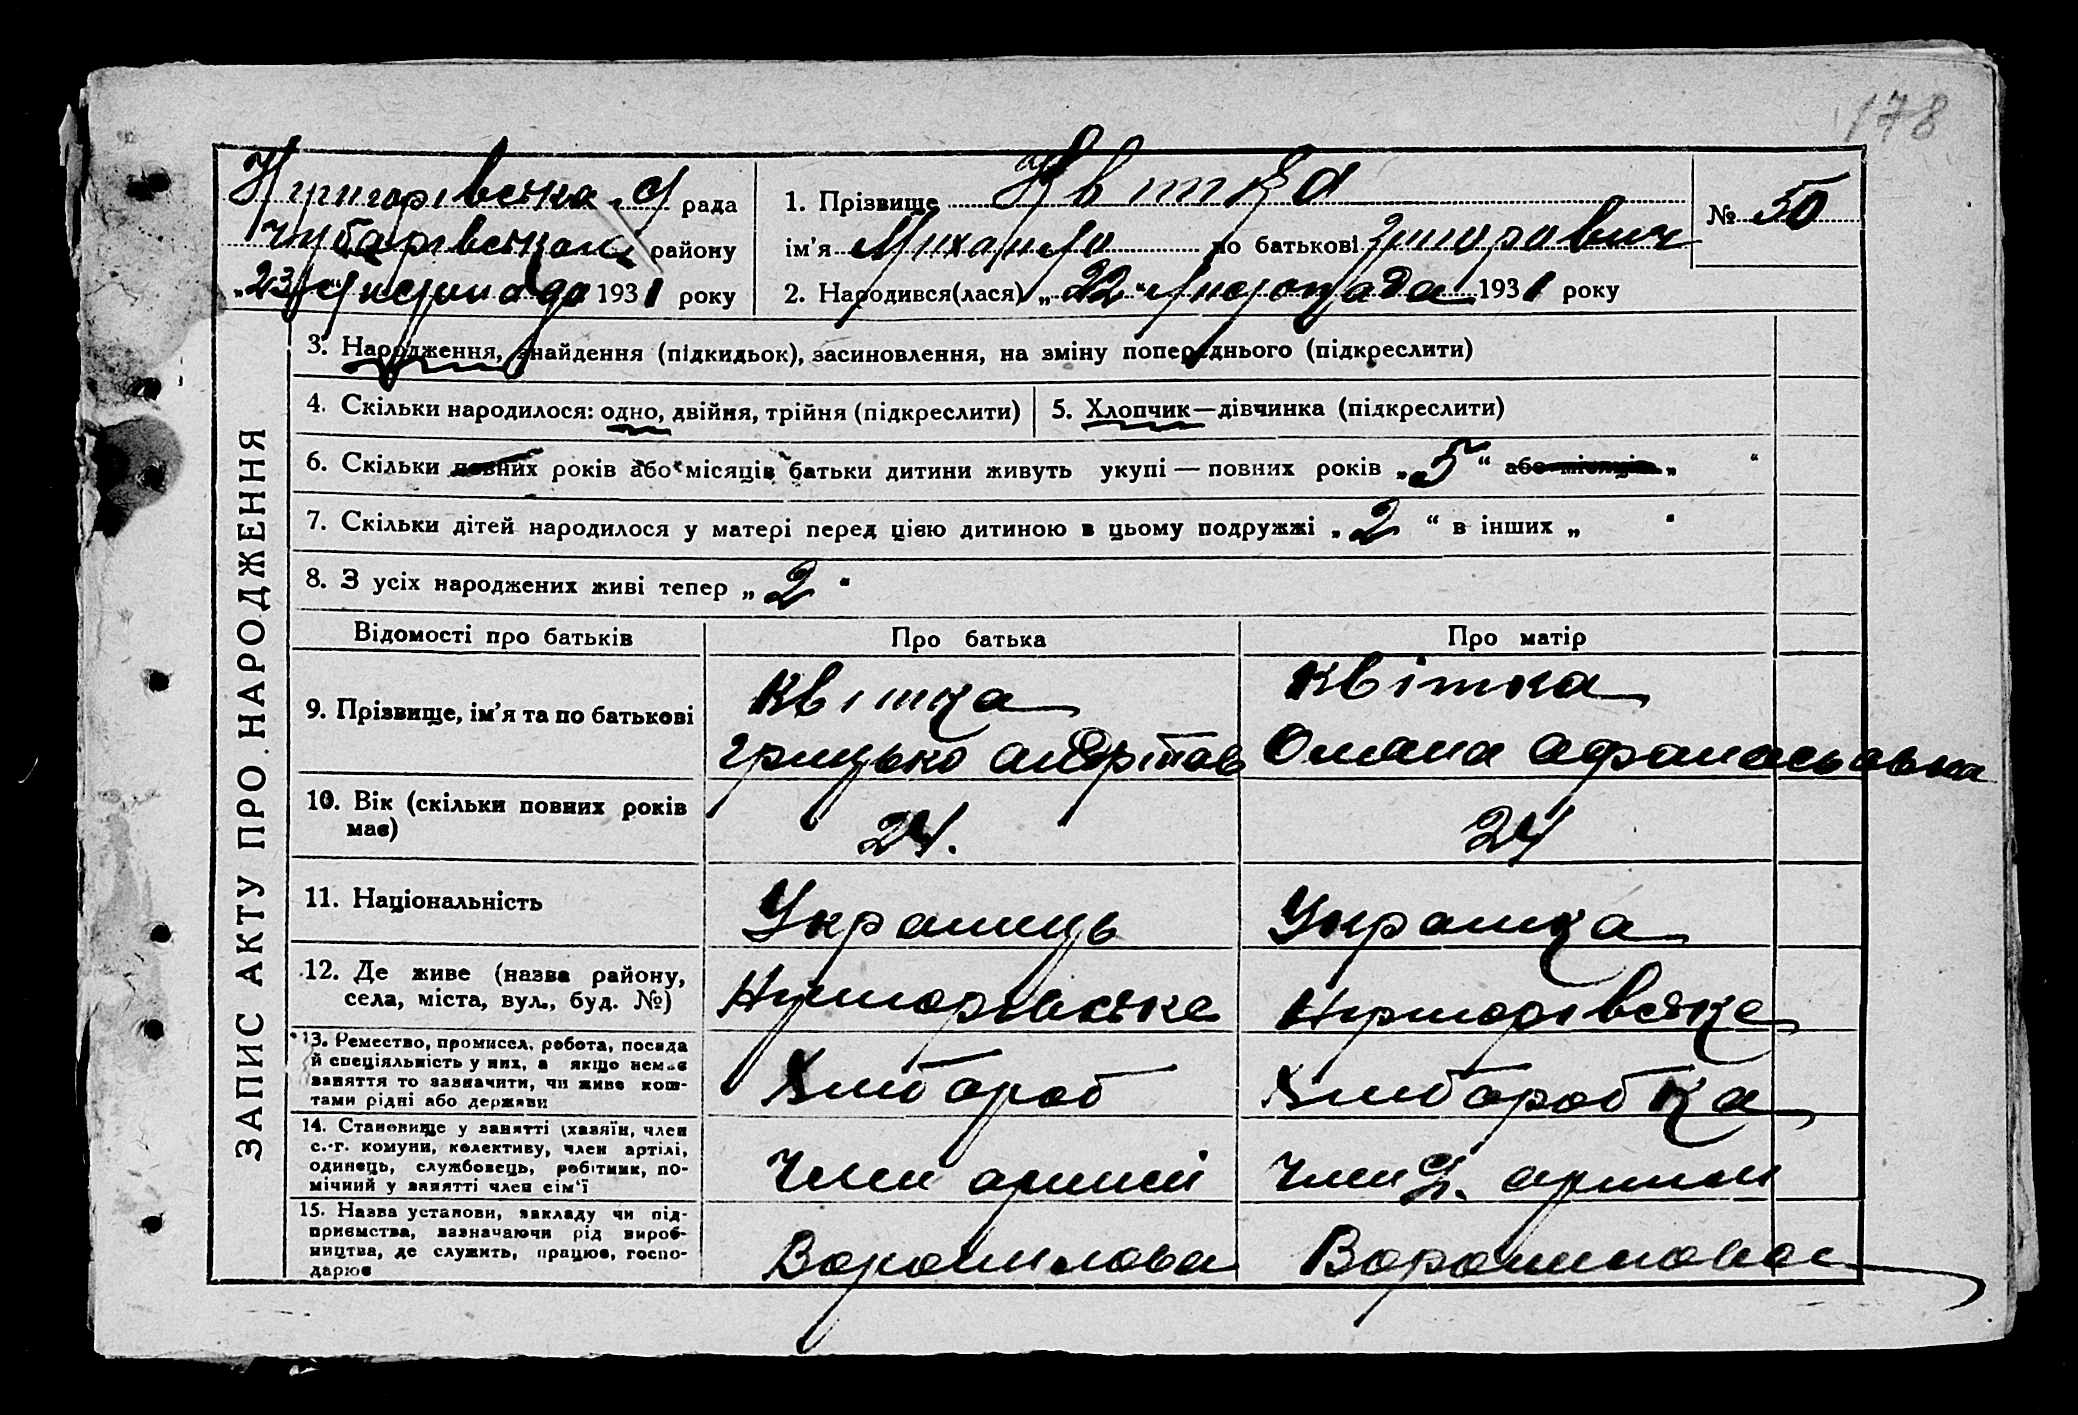 178
Н григорівська с/ рада
Чубарівського району
„23“ Листопада 1931 року
1. Прізвище Квітка
№ 50
ім'я Михайло по батькові Григорович
2. Народився(лася) „22“ Листопада 1931 року
ЗАПИС АКТУ ПРО НАРОДЖЕННЯ
3. Народження, знайдення (підкидьок), засиновлення, на зміну попереднього (підкреслити)
4. Скільки народилося: одно, двійня, трійня (підкреслити)
5. Хлопчик—дівчинка (підкреслити)
6. Скільки повних років або місяців батьки дитини живуть укупі — повних років „5“ або місяців „ “
7. Скільки дітей народилося у матері перед цією дитиною в цьому подружжі „2“ в інших „ “
8. З усіх народжених живі тепер „2“
Відомості про батьків
Про батька
Про матір
9. Прізвище, ім'я та по батькові
Квітка
Грицько
Квітка
Афанасьовна
10. Вік (скільки повних років
має)
24.
24
11. Національність
Українець
Українка
12. Де живе (назва району,
села, міста, вул., буд. №)
Нгригорівське
Нгригорівське
13. Ремество, промисел, робота, посада
й спеціяльність у них, а якщо немає
заняття то зазначити, чи живе кош-
тами рідні або держави
Хлібороб
Хліборобка
14. Становище у занятті (хазяїн, член
с.-г. комуни, колективу, член артілі,
одинець, службовець, робітник, по-
мічний у занятті член сім'ї
Член артілі
Член артіли
15. Назва установи, закладу чи під-
приємства, зазначаючи рід вироб-
ництва, де служить, працює, госпо-
дарює
Ворошилова
Ворошилова